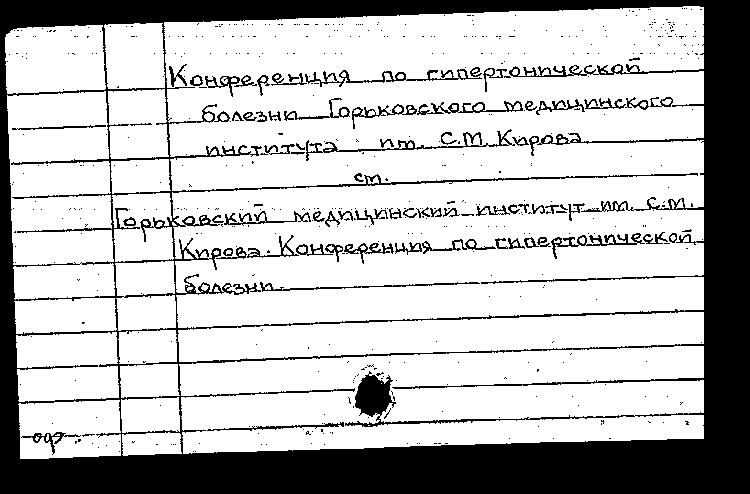 Конференция по гипертонической
болезни Горьковского медицинского
института им. С.М. Кирова
см.
Горьковский медицинский институт им. С.М.
Кирова. Конференция по гипертонической
болезни.